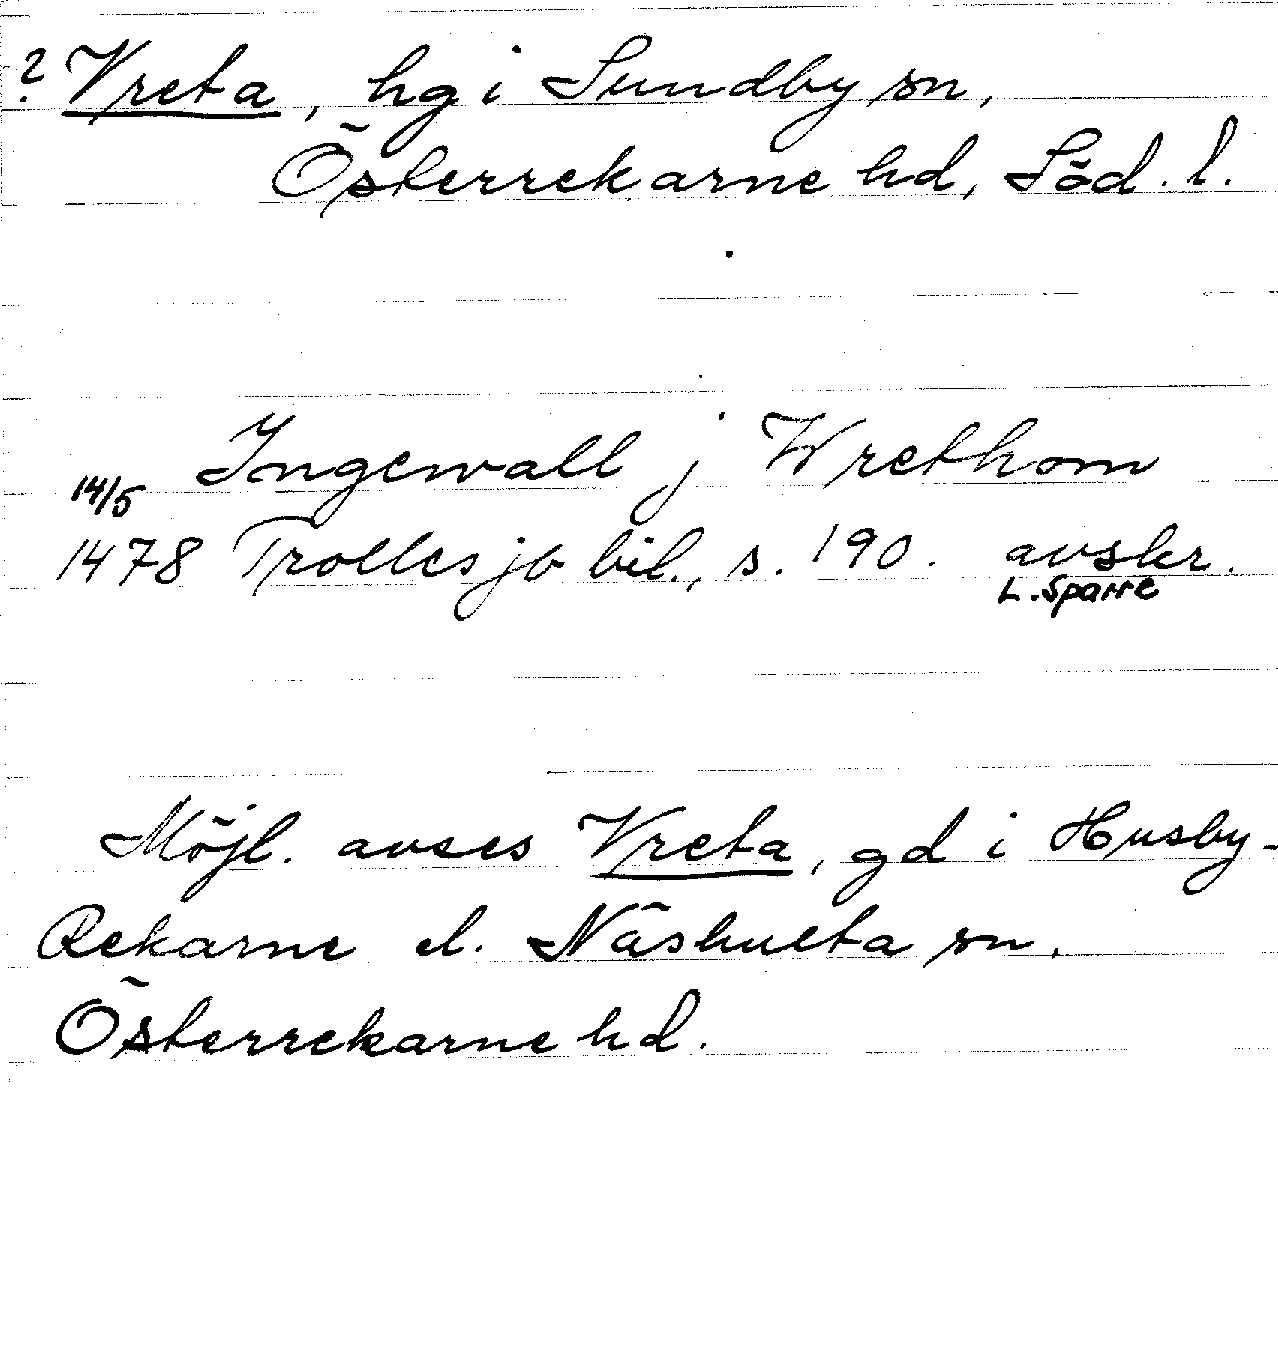 ? Vreta, hg i Sundby sn,
Österrekarne hd, Söd. l.
Ingewall j Wrethom
14/5
1478 Trolles jb bil., s. 190. avskr.
L. Sparre
Möjl. avses Vreta, gd i Husby-
Rekarne el. Näshulta sn.
Österrekarne hd.